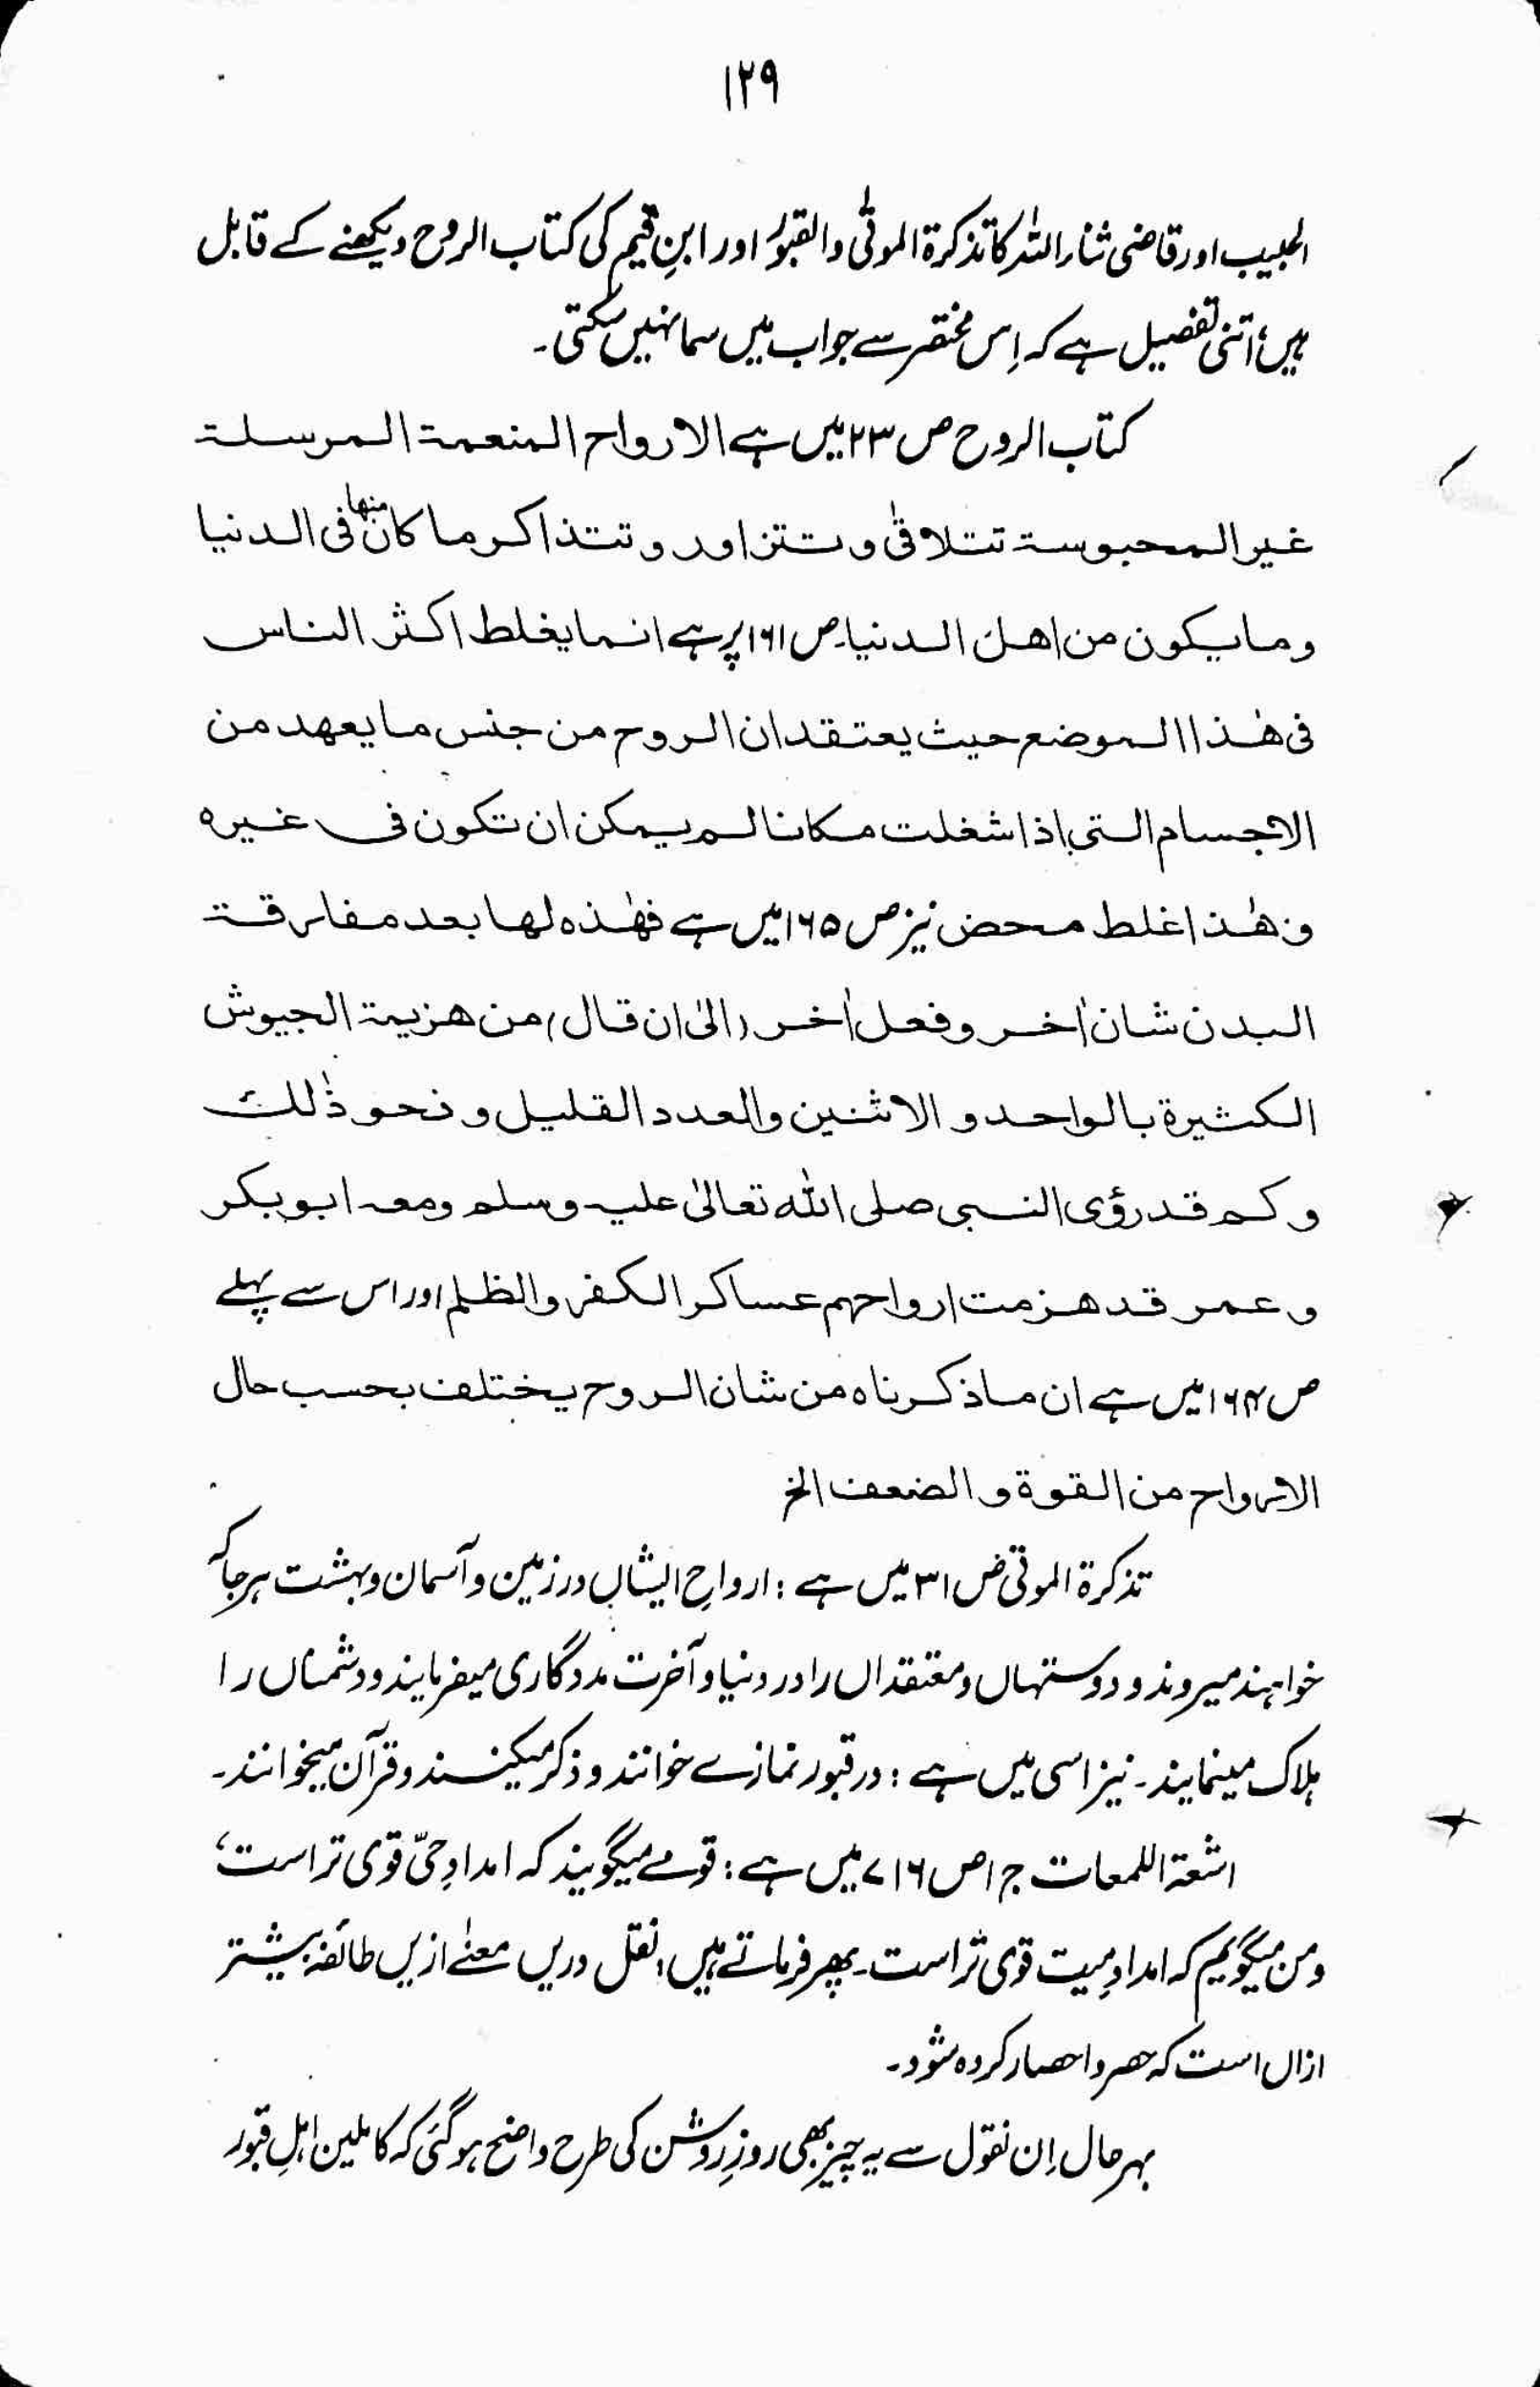 ۱۲۹
الحبیب اور قاضی ثناء اللہ کا تذکرۃ الموتٰی والقبور اور ابنِ قیم کی کتاب الروح دیکھنے کے قابل
ہیں، اتنی تفصیل ہے کہ اِس مختصر سے جواب میں سما نہیں سکتی۔
کتاب الروح ص ۲۳ میں ہے الارواح المنعمۃ المرسلۃ
غیر المحبوسۃ تتلاقٰی و تتزاور و تتذاکر ما کان منھا فی الدنیا
وما یکون من اھل الدنیا۔ ص ۱۶۱ پر ہے انما یغلط اکثر الناس
فی ھٰذا الموضع حیث یعتقد ان الروح من جنس ما یعھد من
الاجسام التی اذا شغلت مکانا لم یمکن ان تکون فی غیرہ
وھٰذا غلط محض نیز ص ۱۶۵ میں ہے فھٰذہ لھا بعد مفارقۃ
البدن شان اٰخر و فعل اٰخر (الیٰ ان قال) من ھزیمۃ الجیوش
الکثیرۃ بالواحد و الاثنین والعدد القلیل و نحو ذٰلک
وکم قد رؤی النبی صلی اللہ تعالیٰ علیہ وسلم ومعہ ابوبکر
وعمر قد ھزمت ارواحہم عساکر الکفر والظلم اور اس سے پہلے
ص ۱۶۴ میں ہے ان ما ذکرناہ من شان الروح یختلف بحسب حال
الارواح من القوۃ و الضعف الخ
تذکرۃ الموتٰی ص ۳۱ میں ہے : ارواحِ ایشاں در زمین و آسمان و بہشت ہر جا کہ
خواہند میروند و دوستہاں و معتقداں را در دنیا و آخرت مددگاری میفرمایند و دشمناں را
ہلاک مینمایند۔ نیز اسی میں ہے : در قبور نمازے خوانند و ذکر میکنند و قرآن میخوانند۔
اشعۃ اللمعات ج ۱ ص ۷۱۶ میں ہے : قومے میگویند کہ امدادِ حیّ قوی تر است،
و من میگویم کہ امدادِ میت قوی تر است۔ پھر فرماتے ہیں : نقل دریں معنٰے ازیں طائفہ بیشتر
ازاں است کہ حصر و احصار کردہ شود۔
بہر حال اِن نقول سے یہ چیز بھی روزِ روشن کی طرح واضح ہو گئی کہ کاملین اہلِ قبور